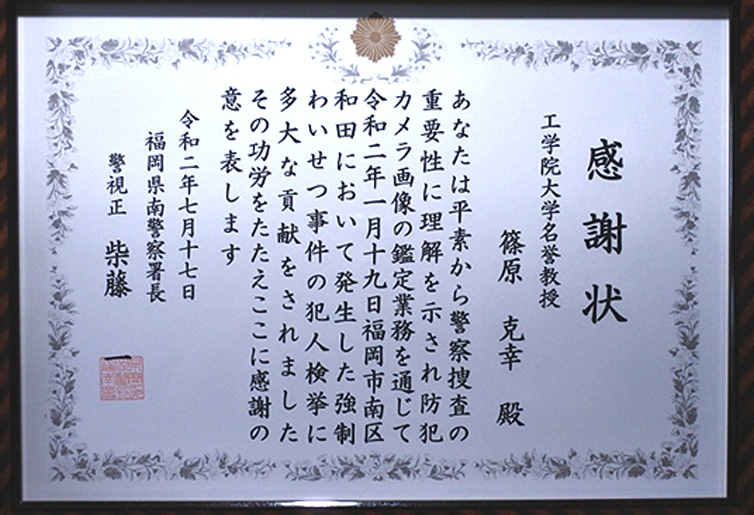 感謝状
工学院大学名誉教授
篠原 克幸 殿
あなたは平素から警察捜査の
重要性に理解を示され防犯
カメラ画像の鑑定業務を通じて
令和二年一月十九日福岡市南区
和田において発生した強制
わいせつ事件の犯人検挙に
多大な貢献をされました
その功労をたたえここに感謝の
意を表します
令和二年七月十七日
福岡県南警察署長
警視正 柴藤 一